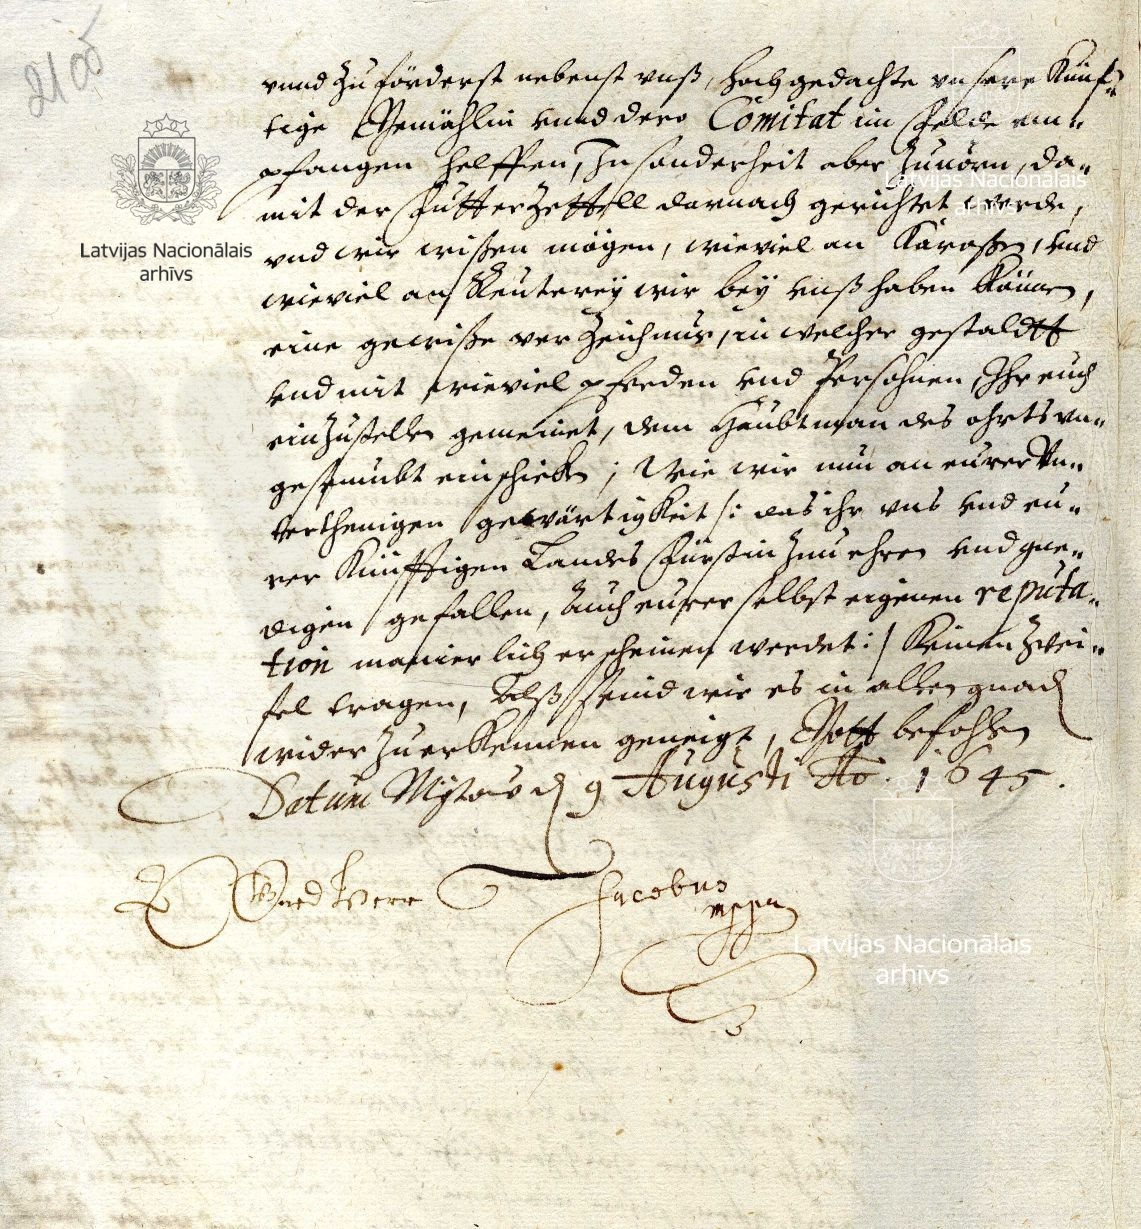 2105
Latvijas Nacionālais
arhīvs
vnnd zuförderst nebenst vnß, hochgedachte vnsere Künf-
tige Gemählin vnnd dero Comitat im Felde em-
pfangen helffen, Insonderheit aber zuuorn, da-
mit der Futterzettell darnach gerichtet werde,
vnd wir wißen mögen, wieviel an Karoßen, vnd
wieviel an Reuterey wir bey vnß haben können,
eine gewiße verzeichnus, in welcher gestaldtt
vnd mit wieviel pferden vnd Persohnen, Ihr euch
einzustellen gemeinet, dem Haubtman des ohrts vn-
geseumbt einschicken; Wie wir nun an eurer Vn-
terthenigen gewärtigkeit /: das ihr vns vnd eu-
rer Künfftigen Landes Fürstin zuu ehren vnd gne-
digen gefallen, auch eurer selbst eigenen reputa-
tion manierlich erscheinen werdet :/ Keinen zwei-
fel tragen, Alß seind wir es in allen gnaden
wider zuerkennen geneigt, Gott befohlen
Datum Mytow d 9 Augusti Ao. 1645.
Jacobus
mppa
Latvijas Nacionālais
arhīvs
Latvijas Nacionālais
arhīvs